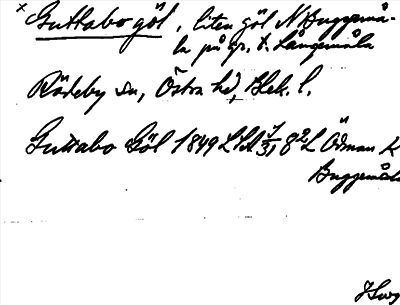 x Guttabo göl, liten göl N Buggemå-
la på gr. t. Långemåla
Rödeby sn, Östra hd, Blek. l.
Guttabo Göl 1849 LSA 8 L Ödman K
Buggemåla